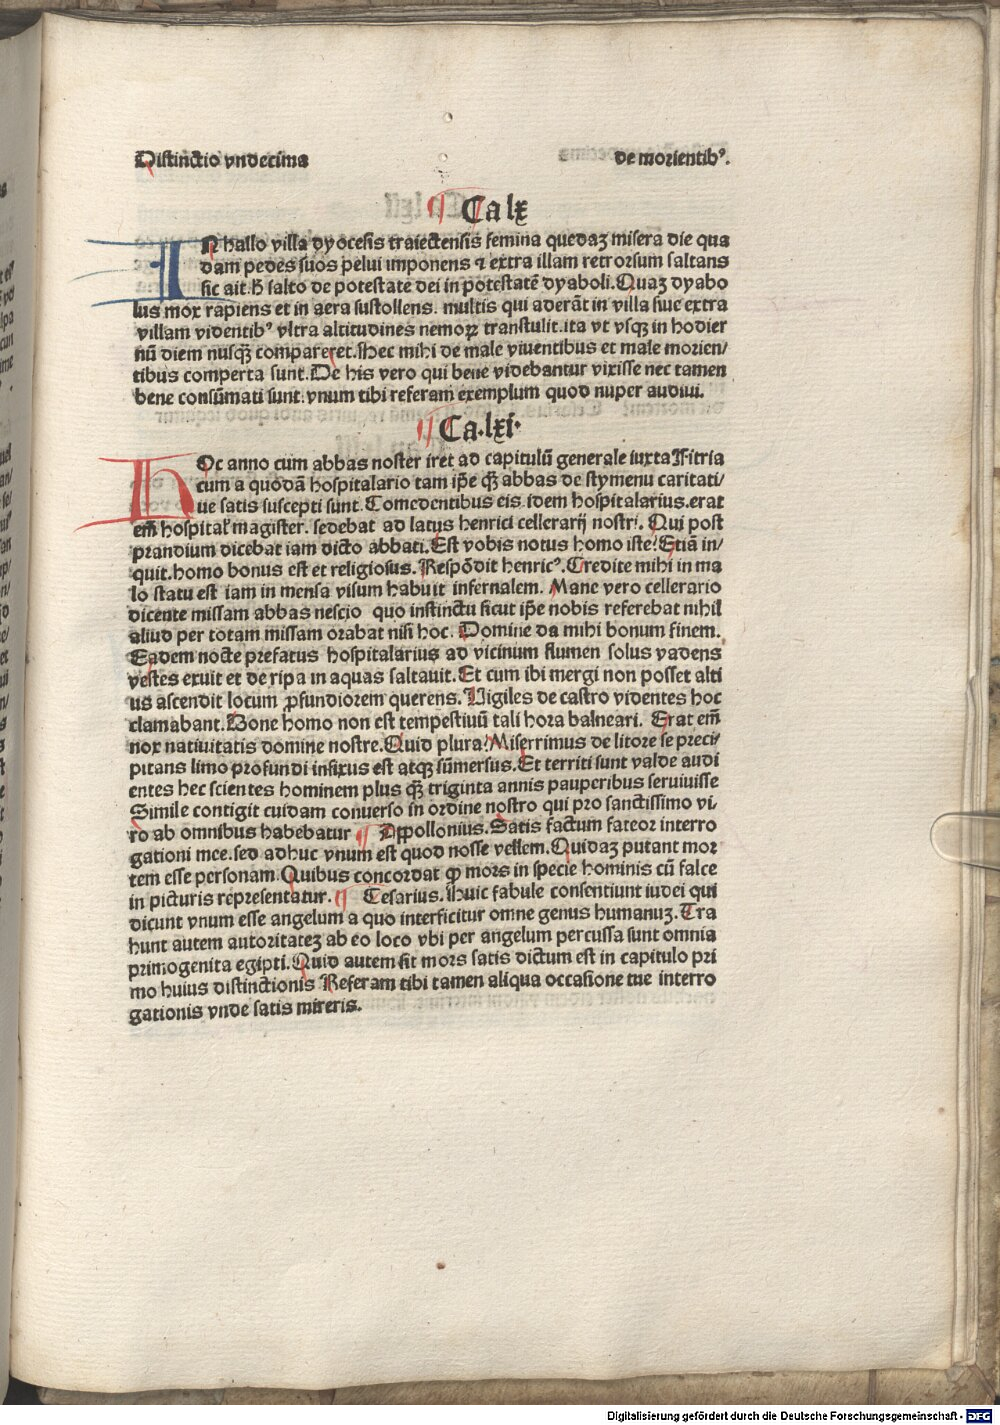 Distinctio vndecima de morientibꝰ.
Ca lx
IN hallo villa dyocesis traiectensis femina quedaꝫ misera die qua
dam pedes suos pelui imponens ⁊ extra illam retrorsum saltans
sic ait. h̄ salto de potestate dei in potestatē dyaboli. Quaꝫ dyabo
lus mox rapiens et in aera sustollens. multis qui aderāt in villa siue extra
villam videntibꝰ vltra altitudines nemoꝝ transtulit. ita vt vsqꝫ in hodier
nū diem nusq̄ꝫ compareret. Hec mihi de male viuentibus et male morien/
tibus comperta sunt. De his vero qui bene videbantur vixisse nec tamen
bene consūmati sunt. vnum tibi referam exemplum quod nuper audiui.
Ca. lxi.
HOc anno cum abbas noster iret ad capitulū generale iuxta Isitria
cum a quodā hospitalario tam ip̄e q̄ꝫ abbas de stymenu caritati/
ue satis suscepti sunt. Comedentibus eis idem hospitalarius. erat
em̄ hospital' magister. sedebat ad latus henrici cellerarij nostri. Qui post
prandium dicebat iam dicto abbati. Est vobis notus homo iste? Etiā in/
quit. homo bonus est et religiosus. Respōdit henricꝰ. Credite mihi in ma
lo statu est iam in mensa visum habuit infernalem. Mane vero cellerario
dicente missam abbas nescio quo instinctu sicut ip̄e nobis referebat nihil
aliud per totam missam orabat nisi hoc. Domine da mihi bonum finem.
Eadem nocte prefatus hospitalarius ad vicinum flumen solus vadens
vestes exuit et de ripa in aquas saltauit. Et cum ibi mergi non posset alti
us ascendit locum ꝓfundiorem querens. Uigiles de castro videntes hoc
clamabant. Bone homo non est tempestiuū tali hora balneari. Erat em̄
nox natiuitatis domine nostre. Quid plura? Miserrimus de litore se preci/
pitans limo profundi infixus est atqꝫ sūmersus. Et territi sunt valde audi
entes hec scientes hominem plus q̄ꝫ triginta annis pauperibus seruiuisse
Simile contigit cuidam conuerso in ordine nostro qui pro sanctissimo vi/
ro ab omnibus habebatur ¶ Appollonius. Satis factum fateor interro
gationi mee. sed adhuc vnum est quod nosse vellem. Quidaꝫ putant mor
tem esse personam. Quibus concordat ꝙ mors in specie hominis cū falce
in picturis representatur. ¶ Cesarius. Huic fabule consentiunt iudei qui
dicunt vnum esse angelum a quo interficitur omne genus humanuꝫ. Tra
hunt autem autoritateꝫ ab eo loco vbi per angelum percussa sunt omnia
primogenita egipti. Quid autem sit mors satis dictum est in capitulo pri
mo huius distinctionis Referam tibi tamen aliqua occasione tue interro
gationis vnde satis mireris.
Digitalisierung gefördert durch die Deutsche Forschungsgemeinschaft - DFG